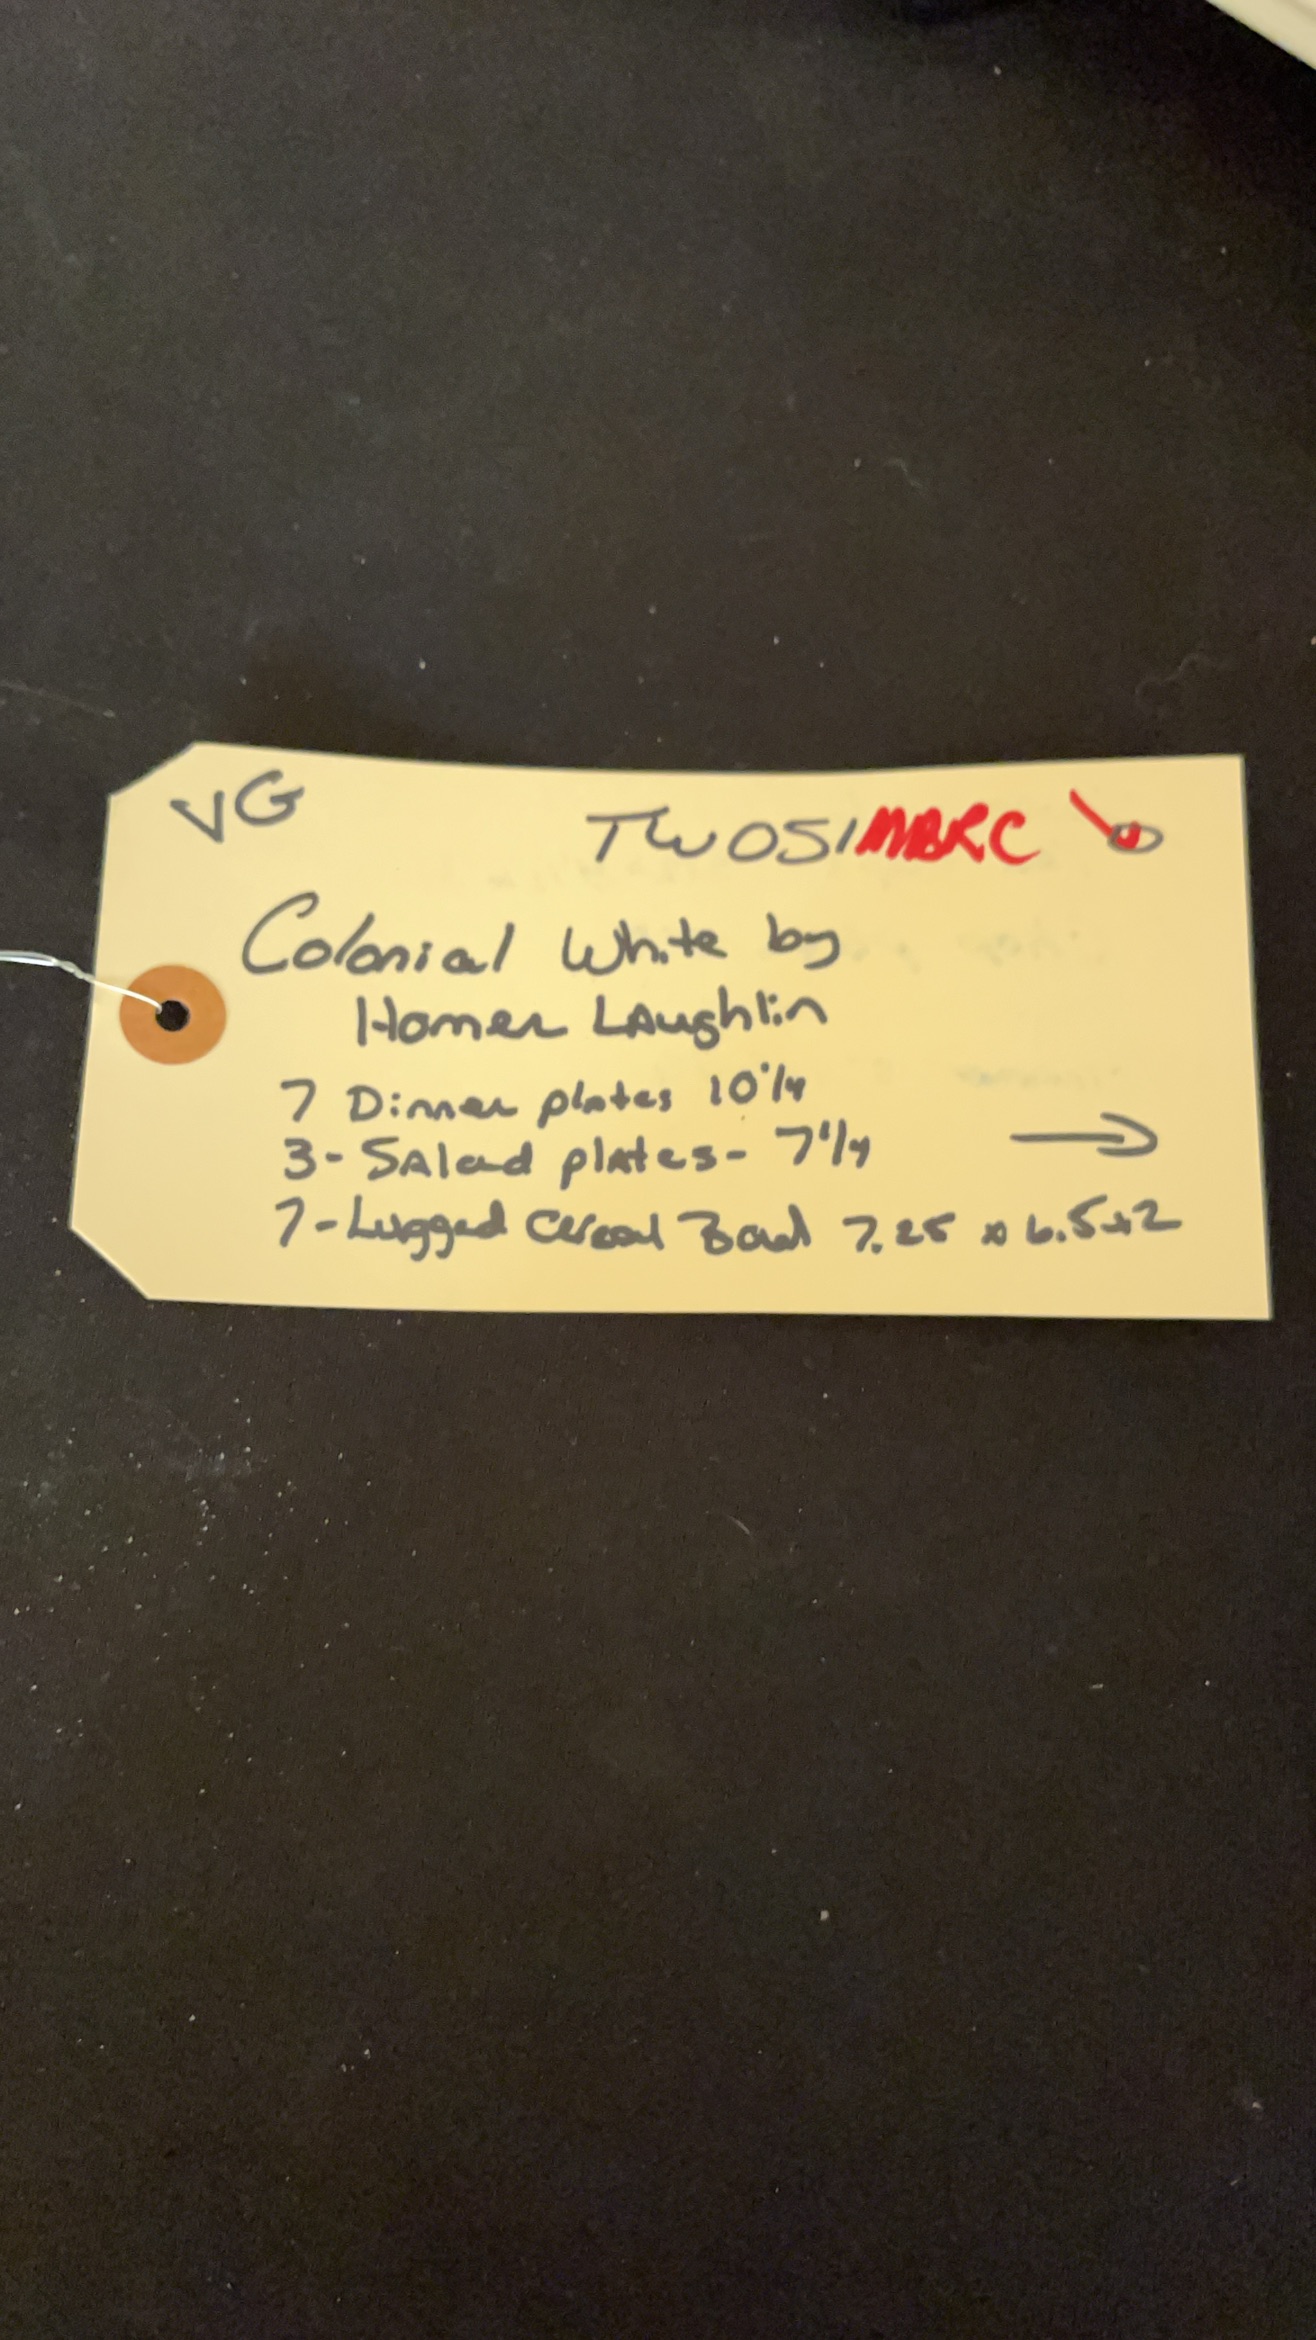 VG
TW051MBRC
Colonial White by
Homer Laughlin
7 Dinner plates 10 1/4
3- Salad plates- 7 1/4
7-Lugged Cereal Bowl 7.25 x 6.5 x 2